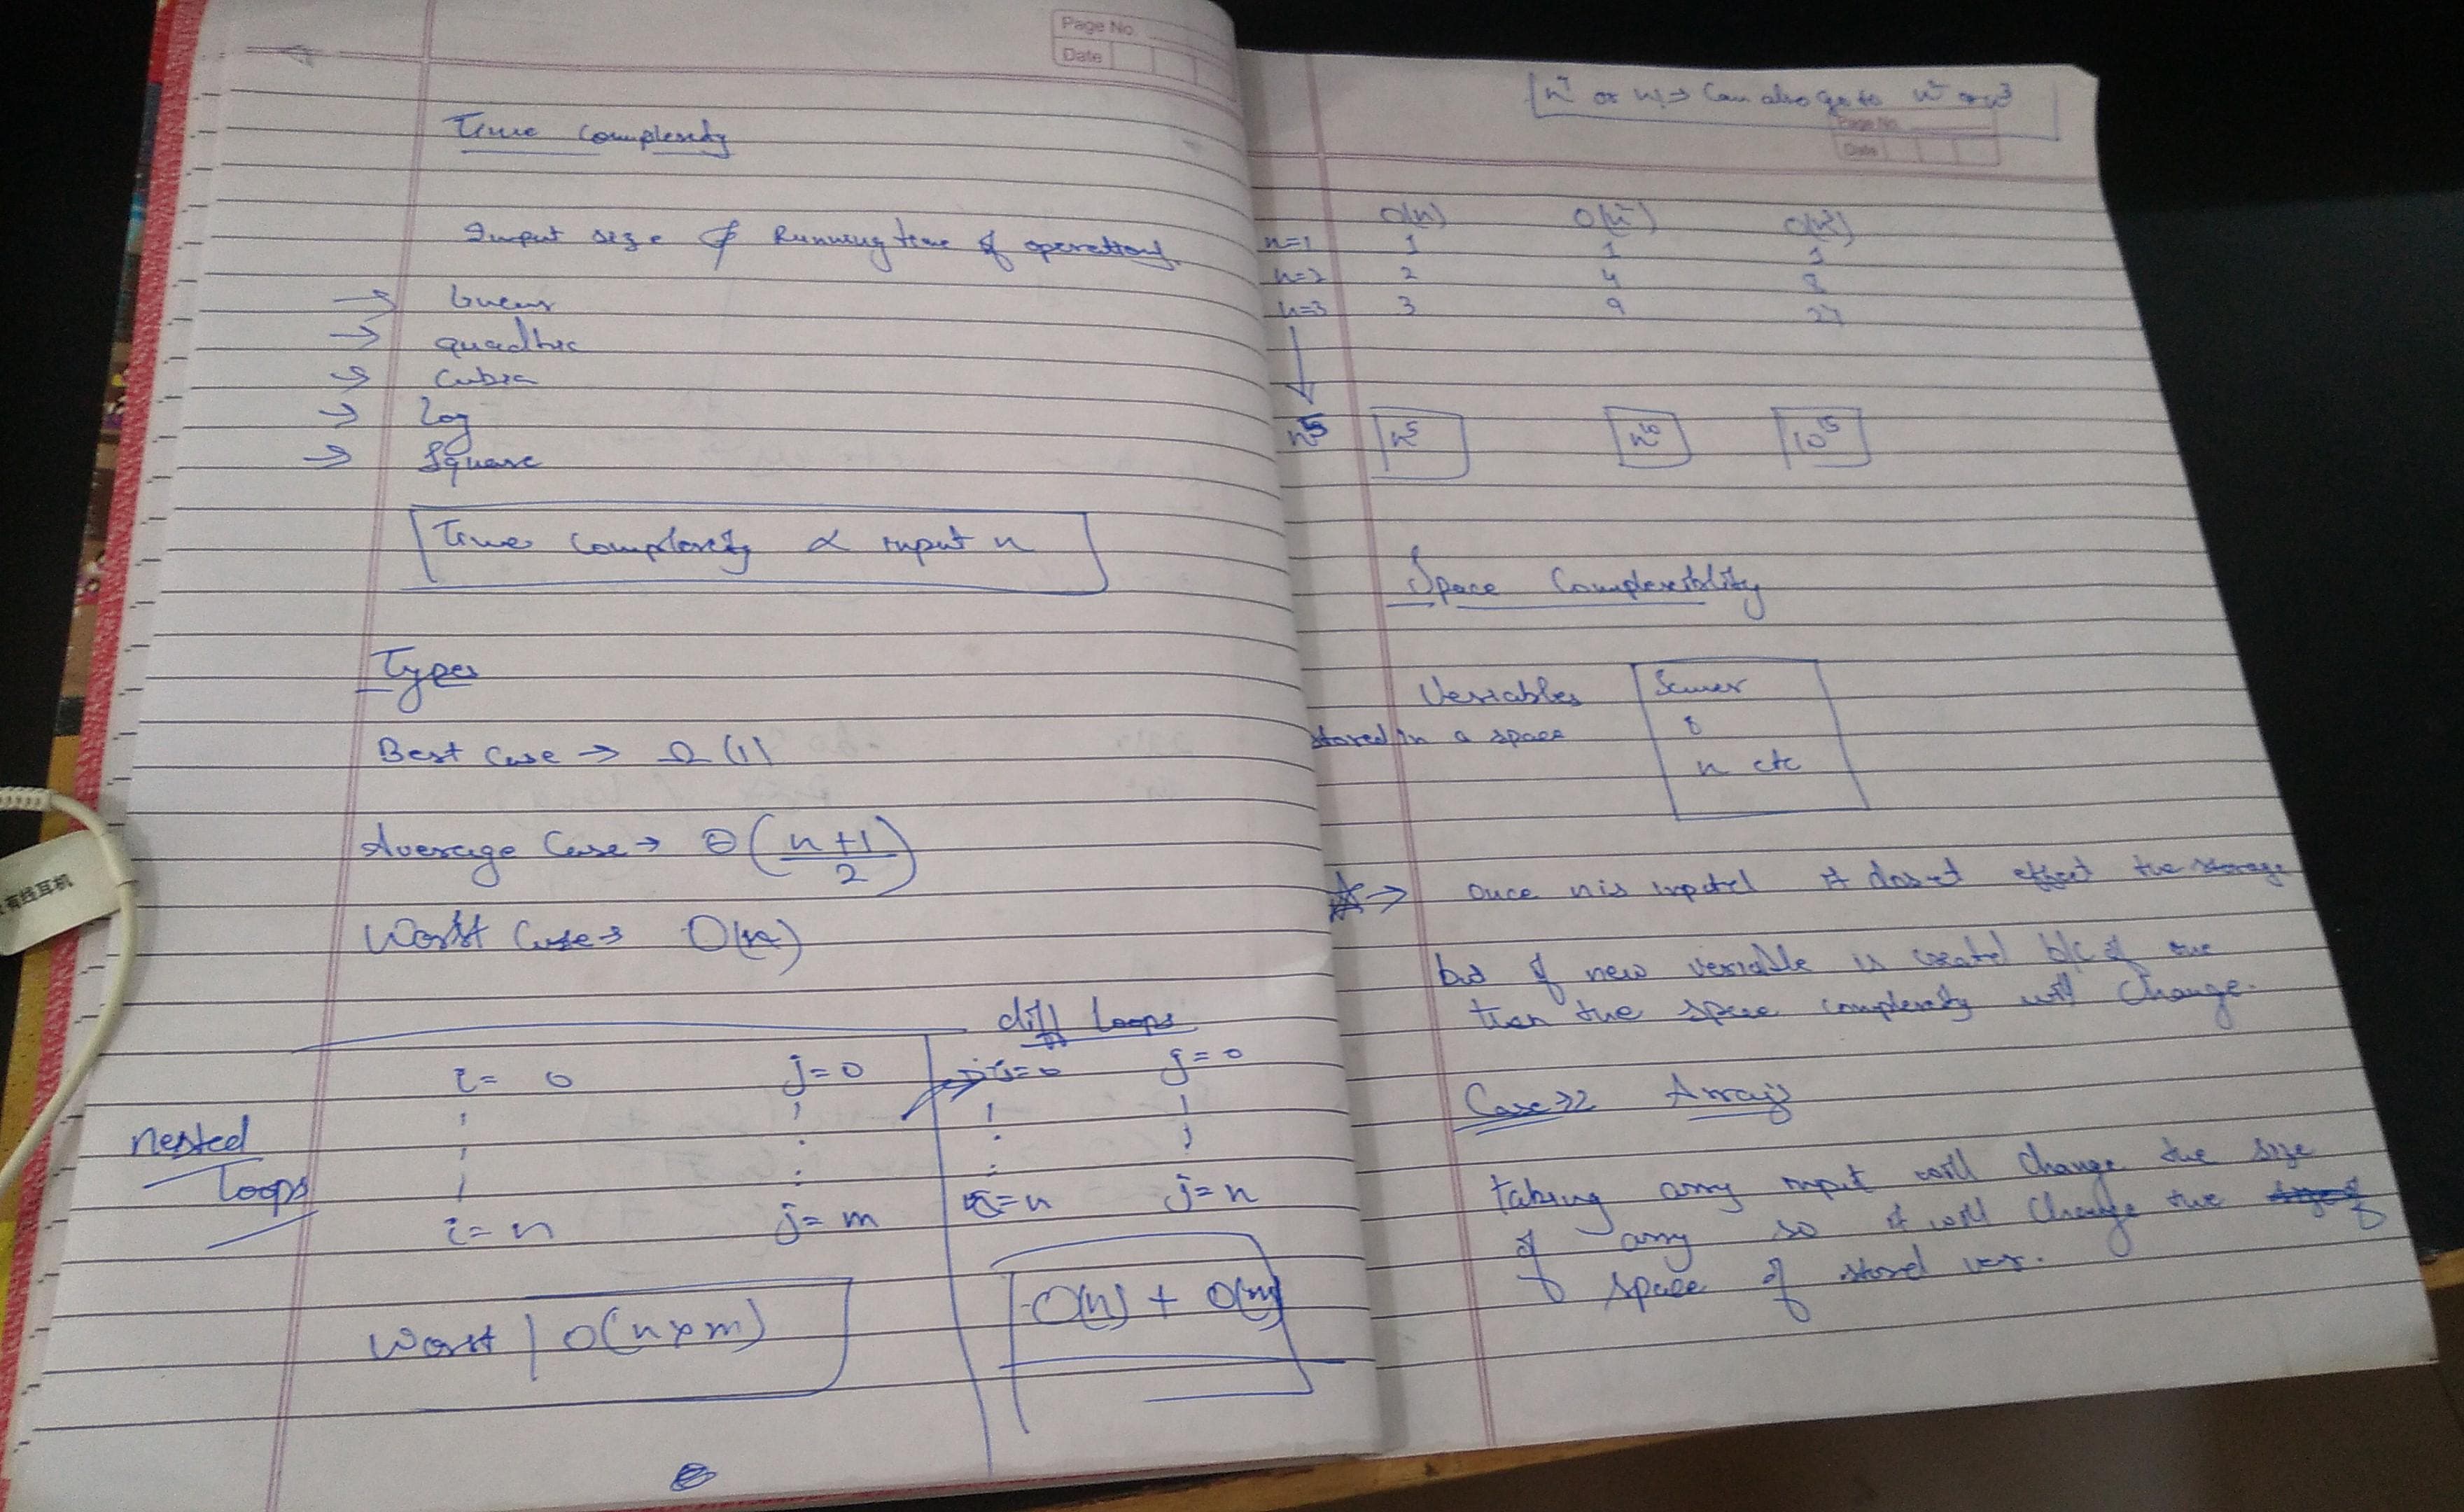 Page No.
Date
Time Complexity
Input size & Running time of operations.
→ linear
→ quadtic
→ Cubic
→ Log
→ Square
Time Complexity ∝ input n
Types
Best Case → Ω (1)
Average Case → Θ (n+1/2)
Worst Case → O(n)
nested loops
i= 0 j=0
i= n j= m
Worst | O(n×m)
diff loops
j=0
=n j=n
O(n) + O(m)
有线耳机
or n → Can also go to n² or n³
Page No.
Date
O(n) O(n²) O(n³)
n=1 1 1 1
n=2 2 4 8
n=3 3 9 27
n⁵ n⁵ n¹⁰ 10¹⁵
Space Complexibility
Variables
stored in a space
n etc
→ Once n is inputed it doesnt effect the storage
but if new veriable is created b/c of one
then the space complexity will change.
Case >> Arrays
taking any input will change the size
of arry so it will change the
space of stored ver.